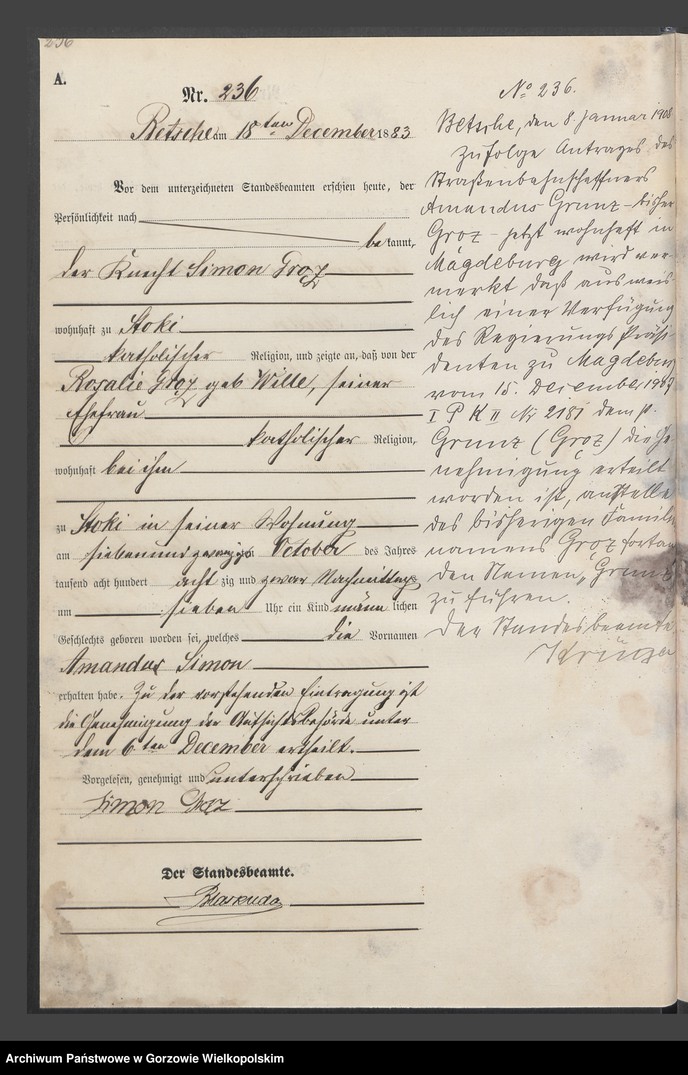 236
A.
Nr. 236
Betsche am 18ten December 1883
Vor dem unterzeichneten Standesbeamten erschien heute, der
Persönlichkeit nach
bekannt,
der Knecht Simon Groz
wohnhaft zu Stoki
katholischer Religion, und zeigte an, daß von der
Rosalie Groz geb Wille, seiner
Ehefrau
katholischer Religion,
wohnhaft bei ihm
zu Stoki in seiner Wohnung
am siebenundzwanzigsten October des Jahres
tausend acht hundert achtzig und zwar Nachmittags
um sieben Uhr ein Kind männlichen
Geschlechts geboren worden sei, welches die Vornamen
Amandus Simon
erhalten habe. Zu der vorstehenden Eintragung ist
die Genehmigung der Aufsichtsbehörde unter
dem 6ten December ertheilt.
Vorgelesen, genehmigt und unterschrieben
Simon Groz
Der Standesbeamte.
No 236.
Betsche, den 8. Januar 1908
Zufolge Antrages des
Straßenbahnschaffners
Amandus Grunz - bisher
Groz - jetzt wohnhaft in
Magdeburg wird ver-
merkt daß ausweis-
lich einer Verfügung
des Regierungs Präsi-
denten zu Magdeburg
vom 15. Dezember
I P K II Nr 2181 dem p.
Grunz (Groz) die Ge-
nehmigung erteilt
worden ist, anstelle
des bisherigen Familien
namens Groz fortan
den Namen "Grunz"
zu führen.
Der Standesbeamte
Krüger
Archiwum Państwowe w Gorzowie Wielkopolskim